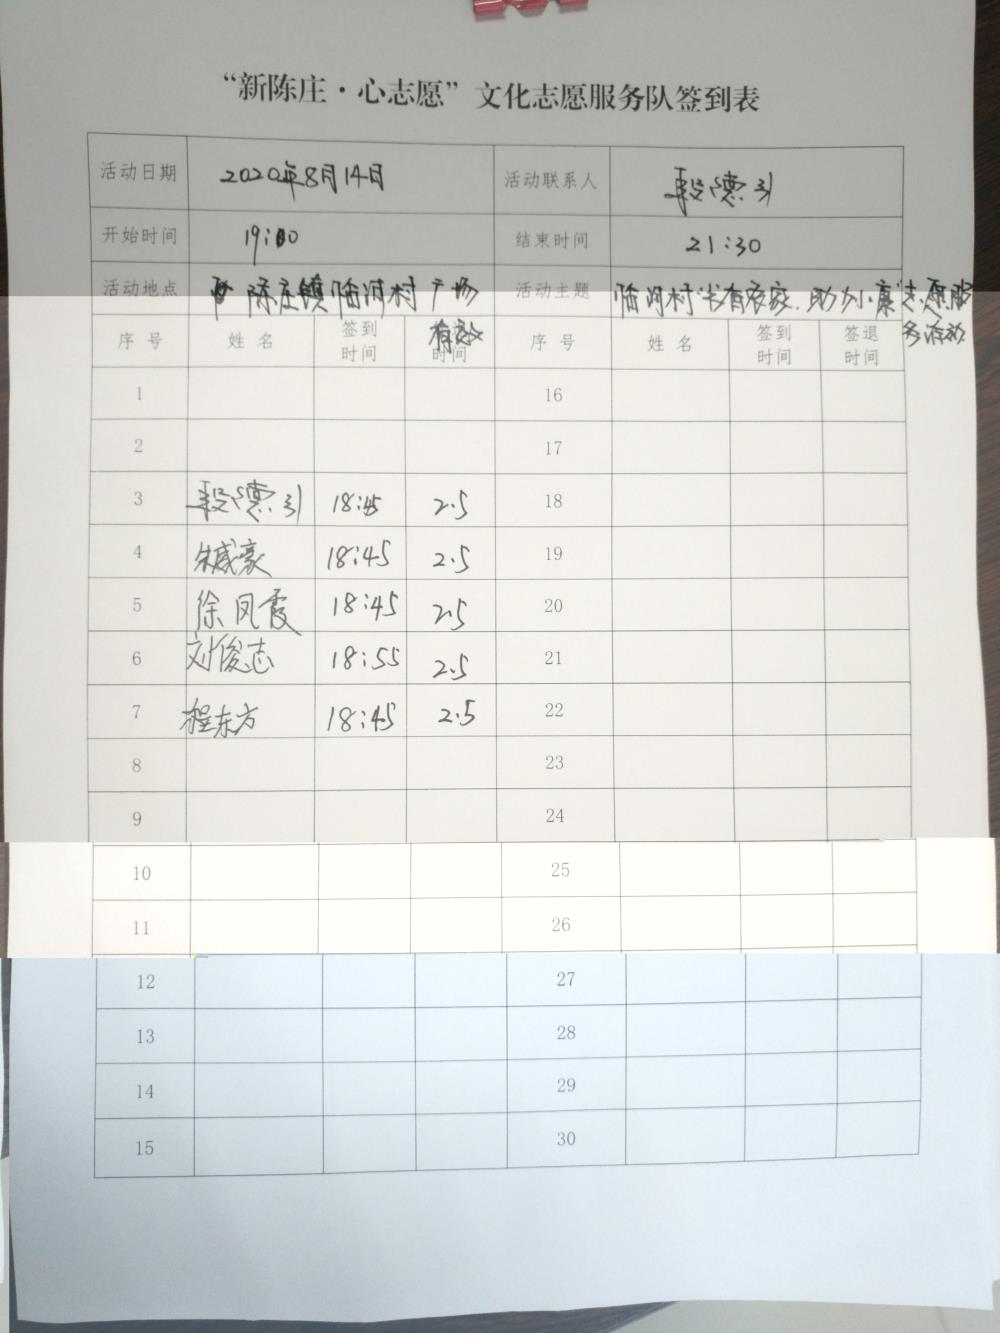 “新陈庄·心志愿”文化志愿服务队签到表
活动日期 2020年8月14日 活动联系人 段德引
开始时间 19:00 结束时间 21:30
活动地点 陈庄镇临河村广场 活动主题 临河村“书有农家,助力小康”志愿服务活动
序号 姓名 签到时间 有效时间 序号 姓名 签到时间 签退时间
1 16
2 17
3 段德引 18:45 2.5 18
4 朱盛豪 18:45 2.5 19
5 徐凤霞 18:45 2.5 20
6 刘俊志 18:55 2.5 21
7 程东方 18:45 2.5 22
8 23
9 24
10 25
11 26
12 27
13 28
14 29
15 30